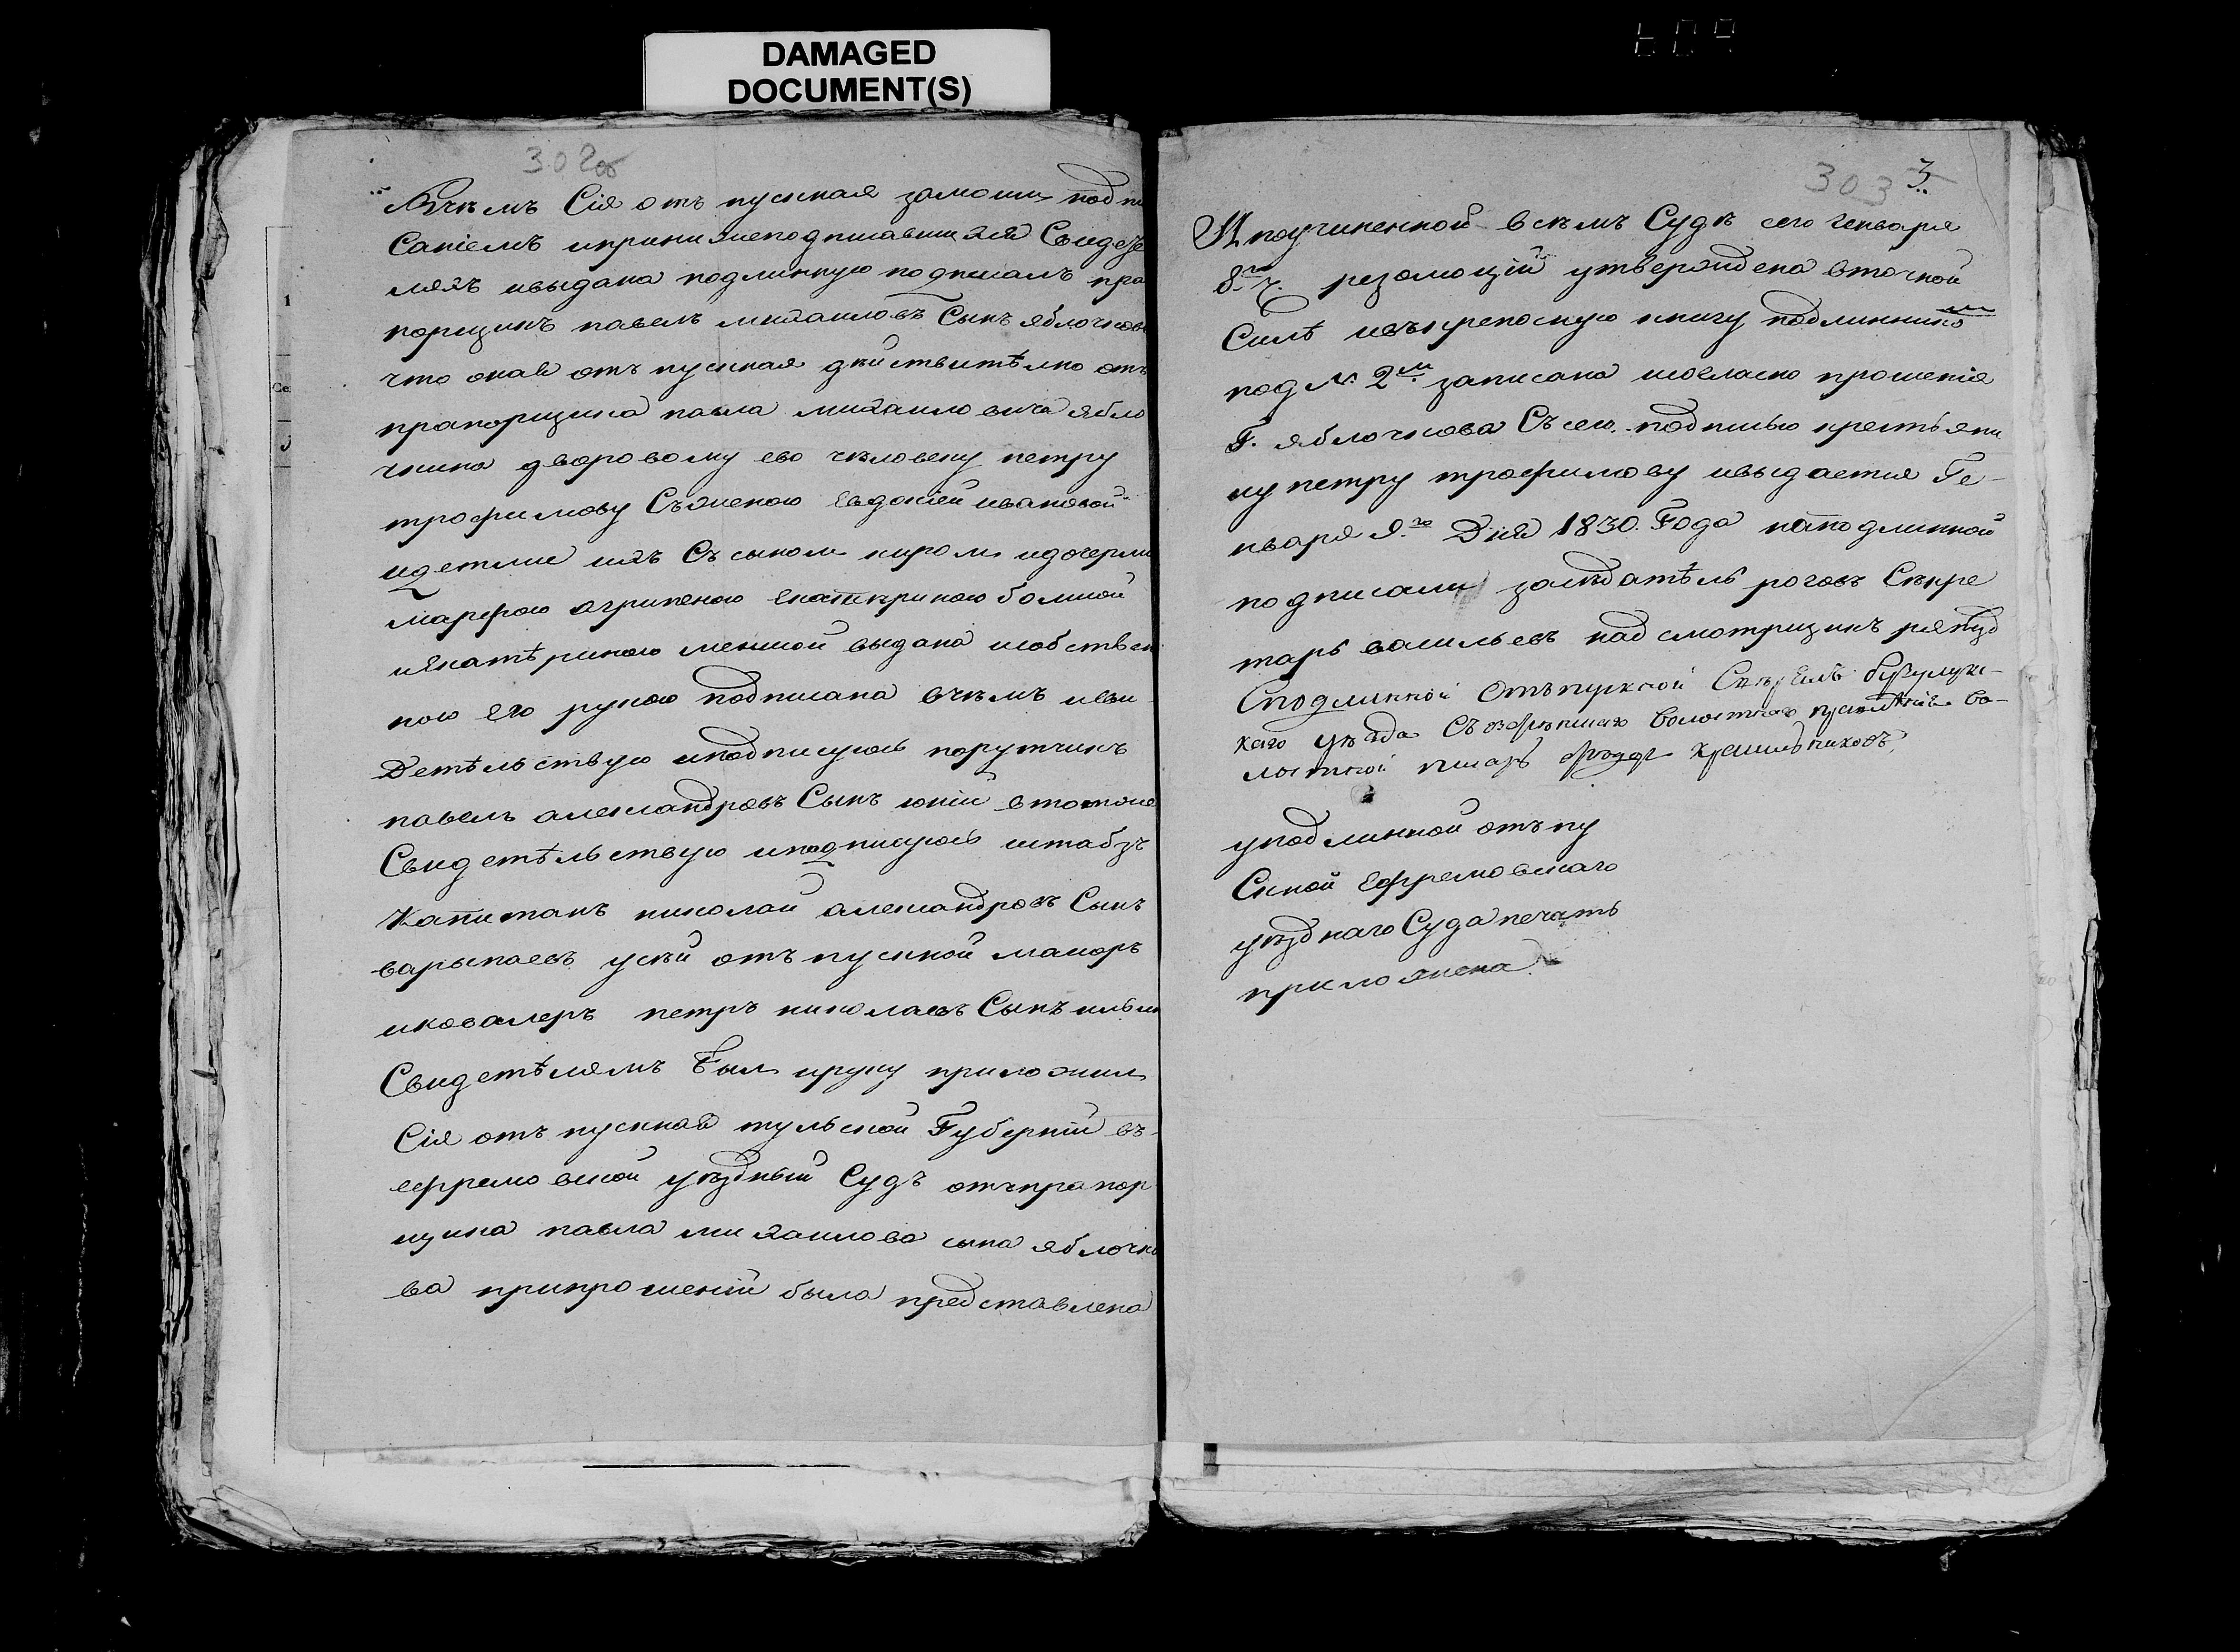 DAMAGED
DOCUMENT(S)
302об
Вчемъ Сія отъ пускная замоимъ подпи
Саніемъ иприни жеподписавшихся Свидете
ляхъ ивыдана подлинную подписалъ пра
порщикъ павелъ михаиловъ Сынъ яблочков
что оная отъ пускная действитѣлно отъ
прапорщика павла михаиловича ябло
чкина дворовому ево человеку петру
трофимову Съженою Евдокіей ивановой
идетми ихъ Съ сыномъ киромъ идочерми
марфою агрипеною екатериною болшой
иекатѣриною меншой выдана исобствен
ною его рукою подписана вчемъ исви
Детѣльствую иподписуюсь порутчикъ
павелъ александровъ Сынъ юкіи втомже
Свидетѣльствую иподписуюсь штабзъ
Капитанъ николай александровъ Сынъ
варыпаевъ усей отъ пускной маиоръ
иковалеръ петръ николаевъ Сынъ
Свидетѣлямъ былъ ируку приложилъ
Сія отъ пускная тульской Губерніи въ
ефремовской уездный Судъ отъпрапор
щика павла михаилова сына яблочко
ва припрошеніи была представлена
303 3
Ипоучиненной всемъ Суде сего генваря
8го ч. резолюціи утверждена вточной
Силѣ ивъкрепосную книгу подлинникомъ
под №. 2м. записана исогласно прошенія
Г. яблочкова Съ сею подписью крестьяни
ну петру трофимову ивыдается Ге-
нваря 9.го Дня 1830. Года наподлинной
подписали заседатѣль роговъ Секре
тарь васильевъ надсмотрщикъ
Сподлинной Отъпускной Сверялъ бузулук-
скаго уезда волостнаго правленія во-
лостной писарь Красильниковъ
уподлинной отъпу
Скной Ефремовскаго
уезднаго Суда печать
приложена